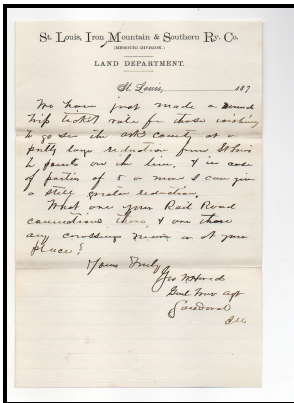 St. Louis, Iron Mountain & Southern Ry. Co.
(MISSOURI DIVISION.)
LAND DEPARTMENT.
St. Louis, 187
We have just made a round
trip ticket rate for those wishing
to go see the ark's county at a
pretty large reduction from St Louis
to points on the line, & in case
of parties of 5 or more I can give
a still greater reduction.
What are your Rail Road
connections there, & are there
any crossings near or at your
place?
Yours Truly
Geo
Genl Trav Agt
Sandoval
Ills